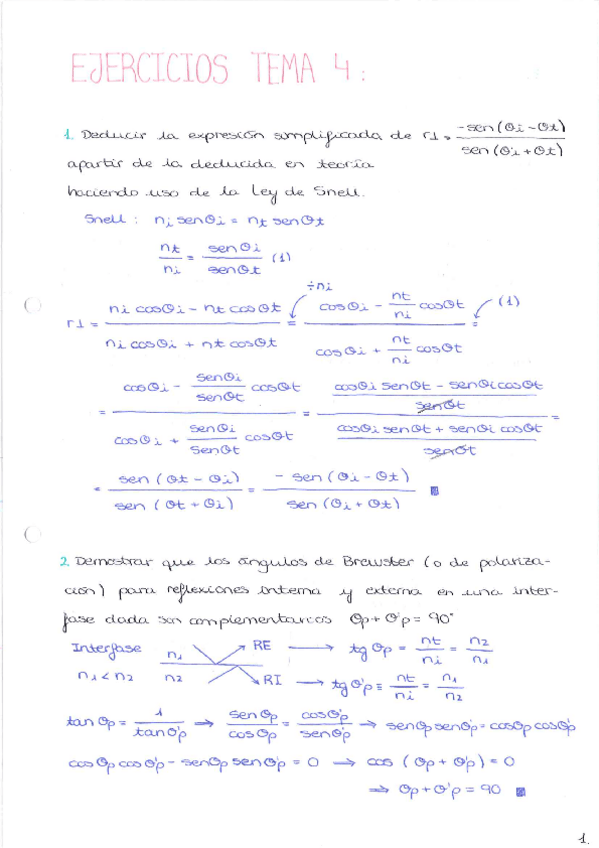 EJERCICIOS TEMA 4:
1. Deducir la expresión simplificada de r⊥ = -sen(θi-θt) / sen(θi+θt)
apartir de la deducida en teoría
haciendo uso de la Ley de Snell.
Snell: ni senθi = nt senθt
nt/ni = senθi/senθt (1)
÷ni
r⊥ = (ni cosθi - nt cosθt) / (ni cosθi + nt cosθt) = (cosθi - nt/ni cosθt) / (cosθi + nt/ni cosθt) = (1)
= (cosθi - senθi/senθt cosθt) / (cosθi + senθi/senθt cosθt) = ((cosθi senθt - senθi cosθt) / senθt) / ((cosθi senθt + senθi cosθt) / senθt) =
= sen(θt-θi) / sen(θt+θi) = -sen(θi-θt) / sen(θi+θt)
2. Demostrar que los ángulos de Brewster (o de polariza-
ción) para reflexiones interna y externa en una inter-
fase dada son complementarios θp + θ'p = 90°
Interfase n1 RE → tg θp = nt/ni = n2/n1
n1 < n2 n2 RI → tg θ'p = nt/ni = n1/n2
tan θp = 1/tan θ'p ⇒ senθp/cosθp = cosθ'p/senθ'p → senθp senθ'p = cosθp cosθ'p
cosθp cosθ'p - senθp senθ'p = 0 → cos(θp + θ'p) = 0
⇒ θp + θ'p = 90
1.